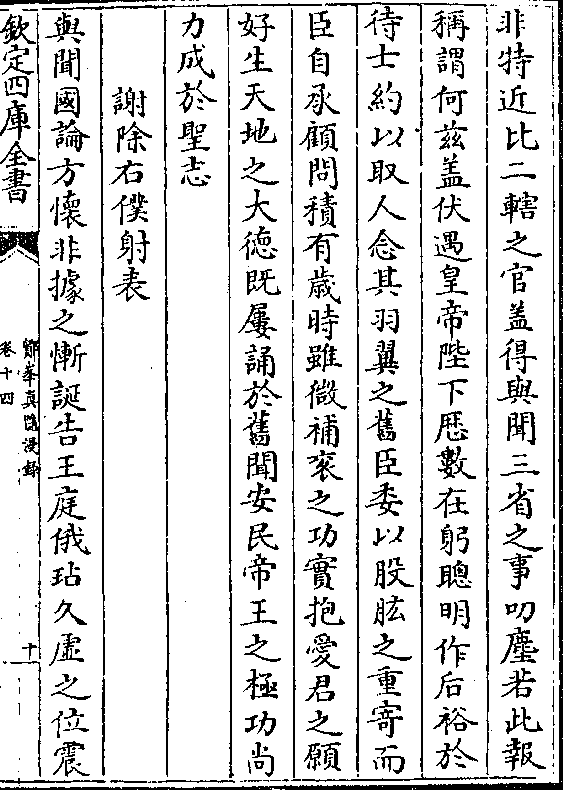 非特近比二轄之官盖得與聞三省之事叨塵若此報
稱謂何兹盖伏遇皇帝陛下厯數在躬聰明作后裕於
待士約以取人念其羽翼之舊臣委以股肱之重寄而
臣自承顧問積有歲時雖微補衮之功實抱愛君之願
好生天地之大德既屢誦於舊聞安民帝王之極功尚
力成於聖志
謝除右僕射表
與聞國論方懷非據之慚誕告王庭俄玷久虚之位震
欽定四庫全書
鄮峯真隠漫録
卷十四
十